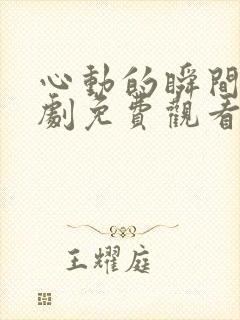 心動的瞬間
劇免費觀看
王耀庭